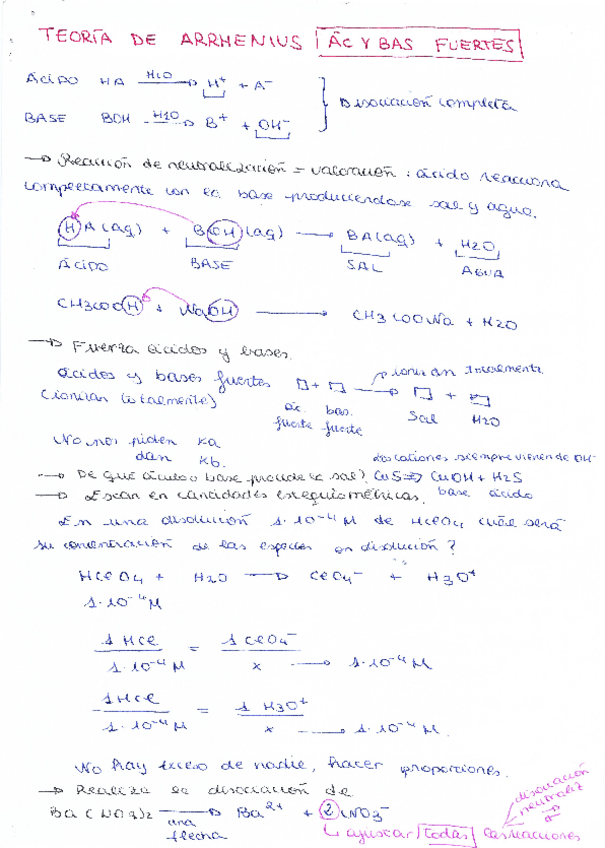 TEORÍA DE ARRHENIUS ÁC Y BAS FUERTES
ÁCIDO HA H2O H⁺ + A⁻
BASE BOH H2O B⁺ + OH⁻ Disociación completa
→ Reacción de neutralización = valoración : ácido reacciona
completamente con la base produciéndose sal y agua.
HA(aq) + BOH(aq) → BA(aq) + H2O
ÁCIDO BASE SAL AGUA
CH3COOH + NaOH → CH3COONa + H2O
→ Fuerza ácidos y bases.
ácidos y bases fuertes + → + ionizan totalmente
(ionizan totalmente) ác. fuerte bas. fuerte Sal H2O
No nos piden Ka
dan Kb.
los cationes siempre vienen de OH⁻
→ De qué ácido o base procede la sal? CuS ⇒ CuOH + H2S
→ Están en cantidades estequiométricas. base ácido
En una disolución 1·10⁻⁴ M de HClO4 cuál será
su concentración de las especies en disolución?
HClO4 + H2O → ClO4⁻ + H3O⁺
1·10⁻⁴M
1 HCl = 1 ClO4⁻
1·10⁻⁴ M x → 1·10⁻⁴ M
1 HCl = 1 H3O⁺
1·10⁻⁴ M x → 1·10⁻⁴ M.
No hay exceso de nadie, hacer proporciones.
→ Realiza la disociación de
Ba(NO3)2 → Ba²⁺ + 2 NO3⁻
una flecha
ajustar todas las reacciones
disociación
neutraliz